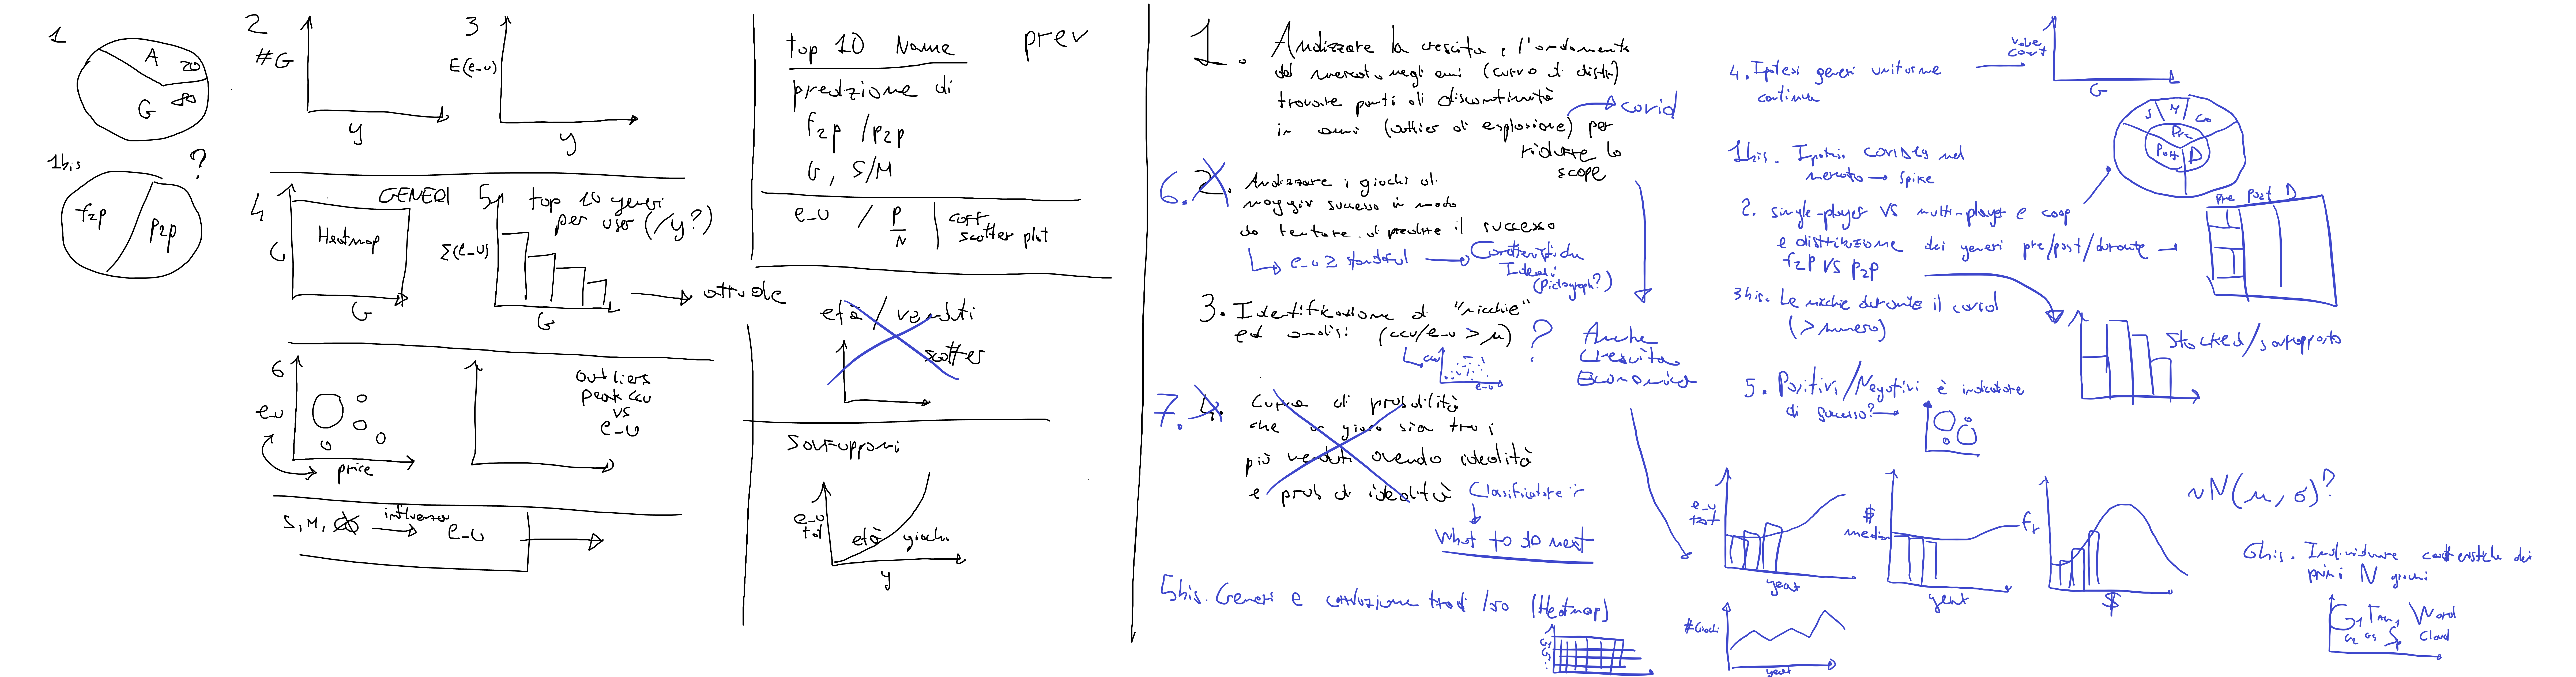 1
A
20
G
80
1bis
?
f2p
p2p
2
#G
y
3
E(e_u)
y
4
GENERI
G
Heatmap
G
5
top 10 generi
per user (/y?)
Σ(e_u)
G
attuale
6
e_u
price
outliers
peak ccu
vs
e_u
S, M,
influenza
e_u
top 10 Name
prev
predizione di
f2p / p2p
G, S/M
e_u / P/N
coff
scatter plot
età / venduti
scatter
Sovrapponi
e_u
tot
età giochi
y
1. Analizzare la crescita e l'andamento
del mercato negli anni (curva di distr)
trovare punti di discontinuità
in anni (outlier di esplosione) per
ridurre lo
scope
covid
6. 2. Analizzare i giochi di
maggior successo in modo
da tentare di predire il successo
e_u ≥ standard
Caratteristiche
Ideali
(Pictograph?)
3. Identificazione di "nicchie"
ed analisi (ccu/e_u > μ) ?
ccu
e_u
Anche
Crescita
Economica
7. 4. Curva di probabilità
che un gioco sia tra i
più venduti avendo idealità
e prob di idealità
Classificatore
What to do next
5bis. Generi e correlazione tra di loro (Heatmap)
4. Ipotesi generi uniforme
continua
value
count
G
1bis. Ipotesi covid19 nel
mercato → spike
2. single-player vs multi-player e coop
e distribuzione dei generi pre/post/durante
f2p vs p2p
S
M
Co
Pre
Post
D
Pre Post D
3bis. Le nicchie durante il covid
(> numero)
Stacked/sovrapposto
5. Positivi/Negativi è indicatore
di successo?
e_u
tot
year
$
medio
year
fr
$
~N(μ, σ)?
#Giochi
year
6bis. Individuare caratteristiche dei
primi N giochi
Word
Cloud